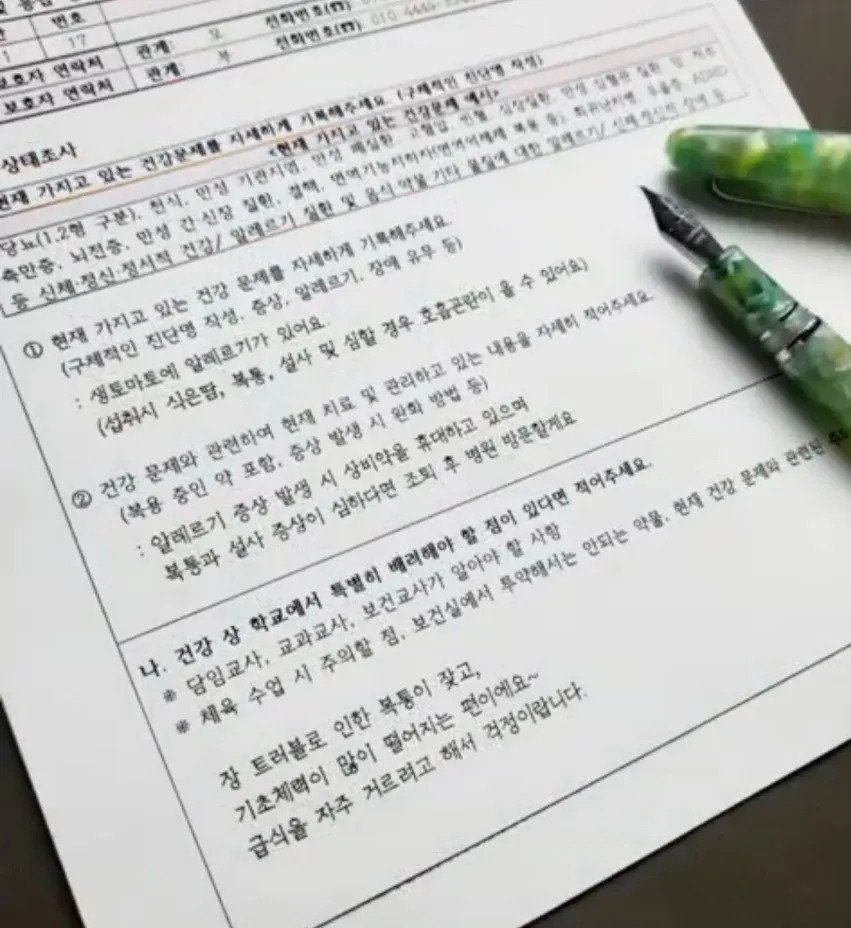 번호
1 17
관계: 모 전화번호(☎)
보호자 연락처 관계: 부 전화번호(☎) 010
보호자 연락처
상태조사
현재 가지고 있는 건강문제를 자세하게 기록해주세요 (구체적인 진단명 작성)
<현재 가지고 있는 건강문제 예시>
당뇨(1,2형 구분), 천식, 만성 기관지염, 만성 폐질환, 고혈압, 빈혈, 심장질환, 만성
측만증, 뇌전증, 만성 간·신장 질환, 결핵, 면역기능저하자(면역억제제 복용 등), 희귀난치병, 우울증, ADHD
등 신체·정신·정서적 건강/ 알레르기 질환 및 음식·약물·기타 물질에 대한 알레르기/ 신체·정신적 장애 등
① 현재 가지고 있는 건강 문제를 자세하게 기록해주세요.
(구체적인 진단명 작성, 증상, 알레르기, 장애 유무 등)
: 생토마토에 알레르기가 있어요.
(섭취시 식은땀, 복통, 설사 및 심할 경우 호흡곤란이 올 수 있어요)
② 건강 문제와 관련하여 현재 치료 및 관리하고 있는 내용을 자세히 적어주세요.
(복용 중인 약 포함, 증상 발생 시 완화 방법 등)
: 알레르기 증상 발생 시 상비약을 휴대하고 있으며
복통과 설사 증상이 심하다면 조퇴 후 병원 방문할게요
나. 건강 상 학교에서 특별히 배려해야 할 점이 있다면 적어주세요.
※ 담임교사, 교과교사, 보건교사가 알아야 할 사항
※ 체육 수업 시 주의할 점, 보건실에서 투약해서는 안되는 약물, 현재 건강 문제와 관련된
장 트러블로 인한 복통이 잦고,
기초체력이 많이 떨어지는 편이에요~
급식을 자주 거르려고 해서 걱정이랍니다.